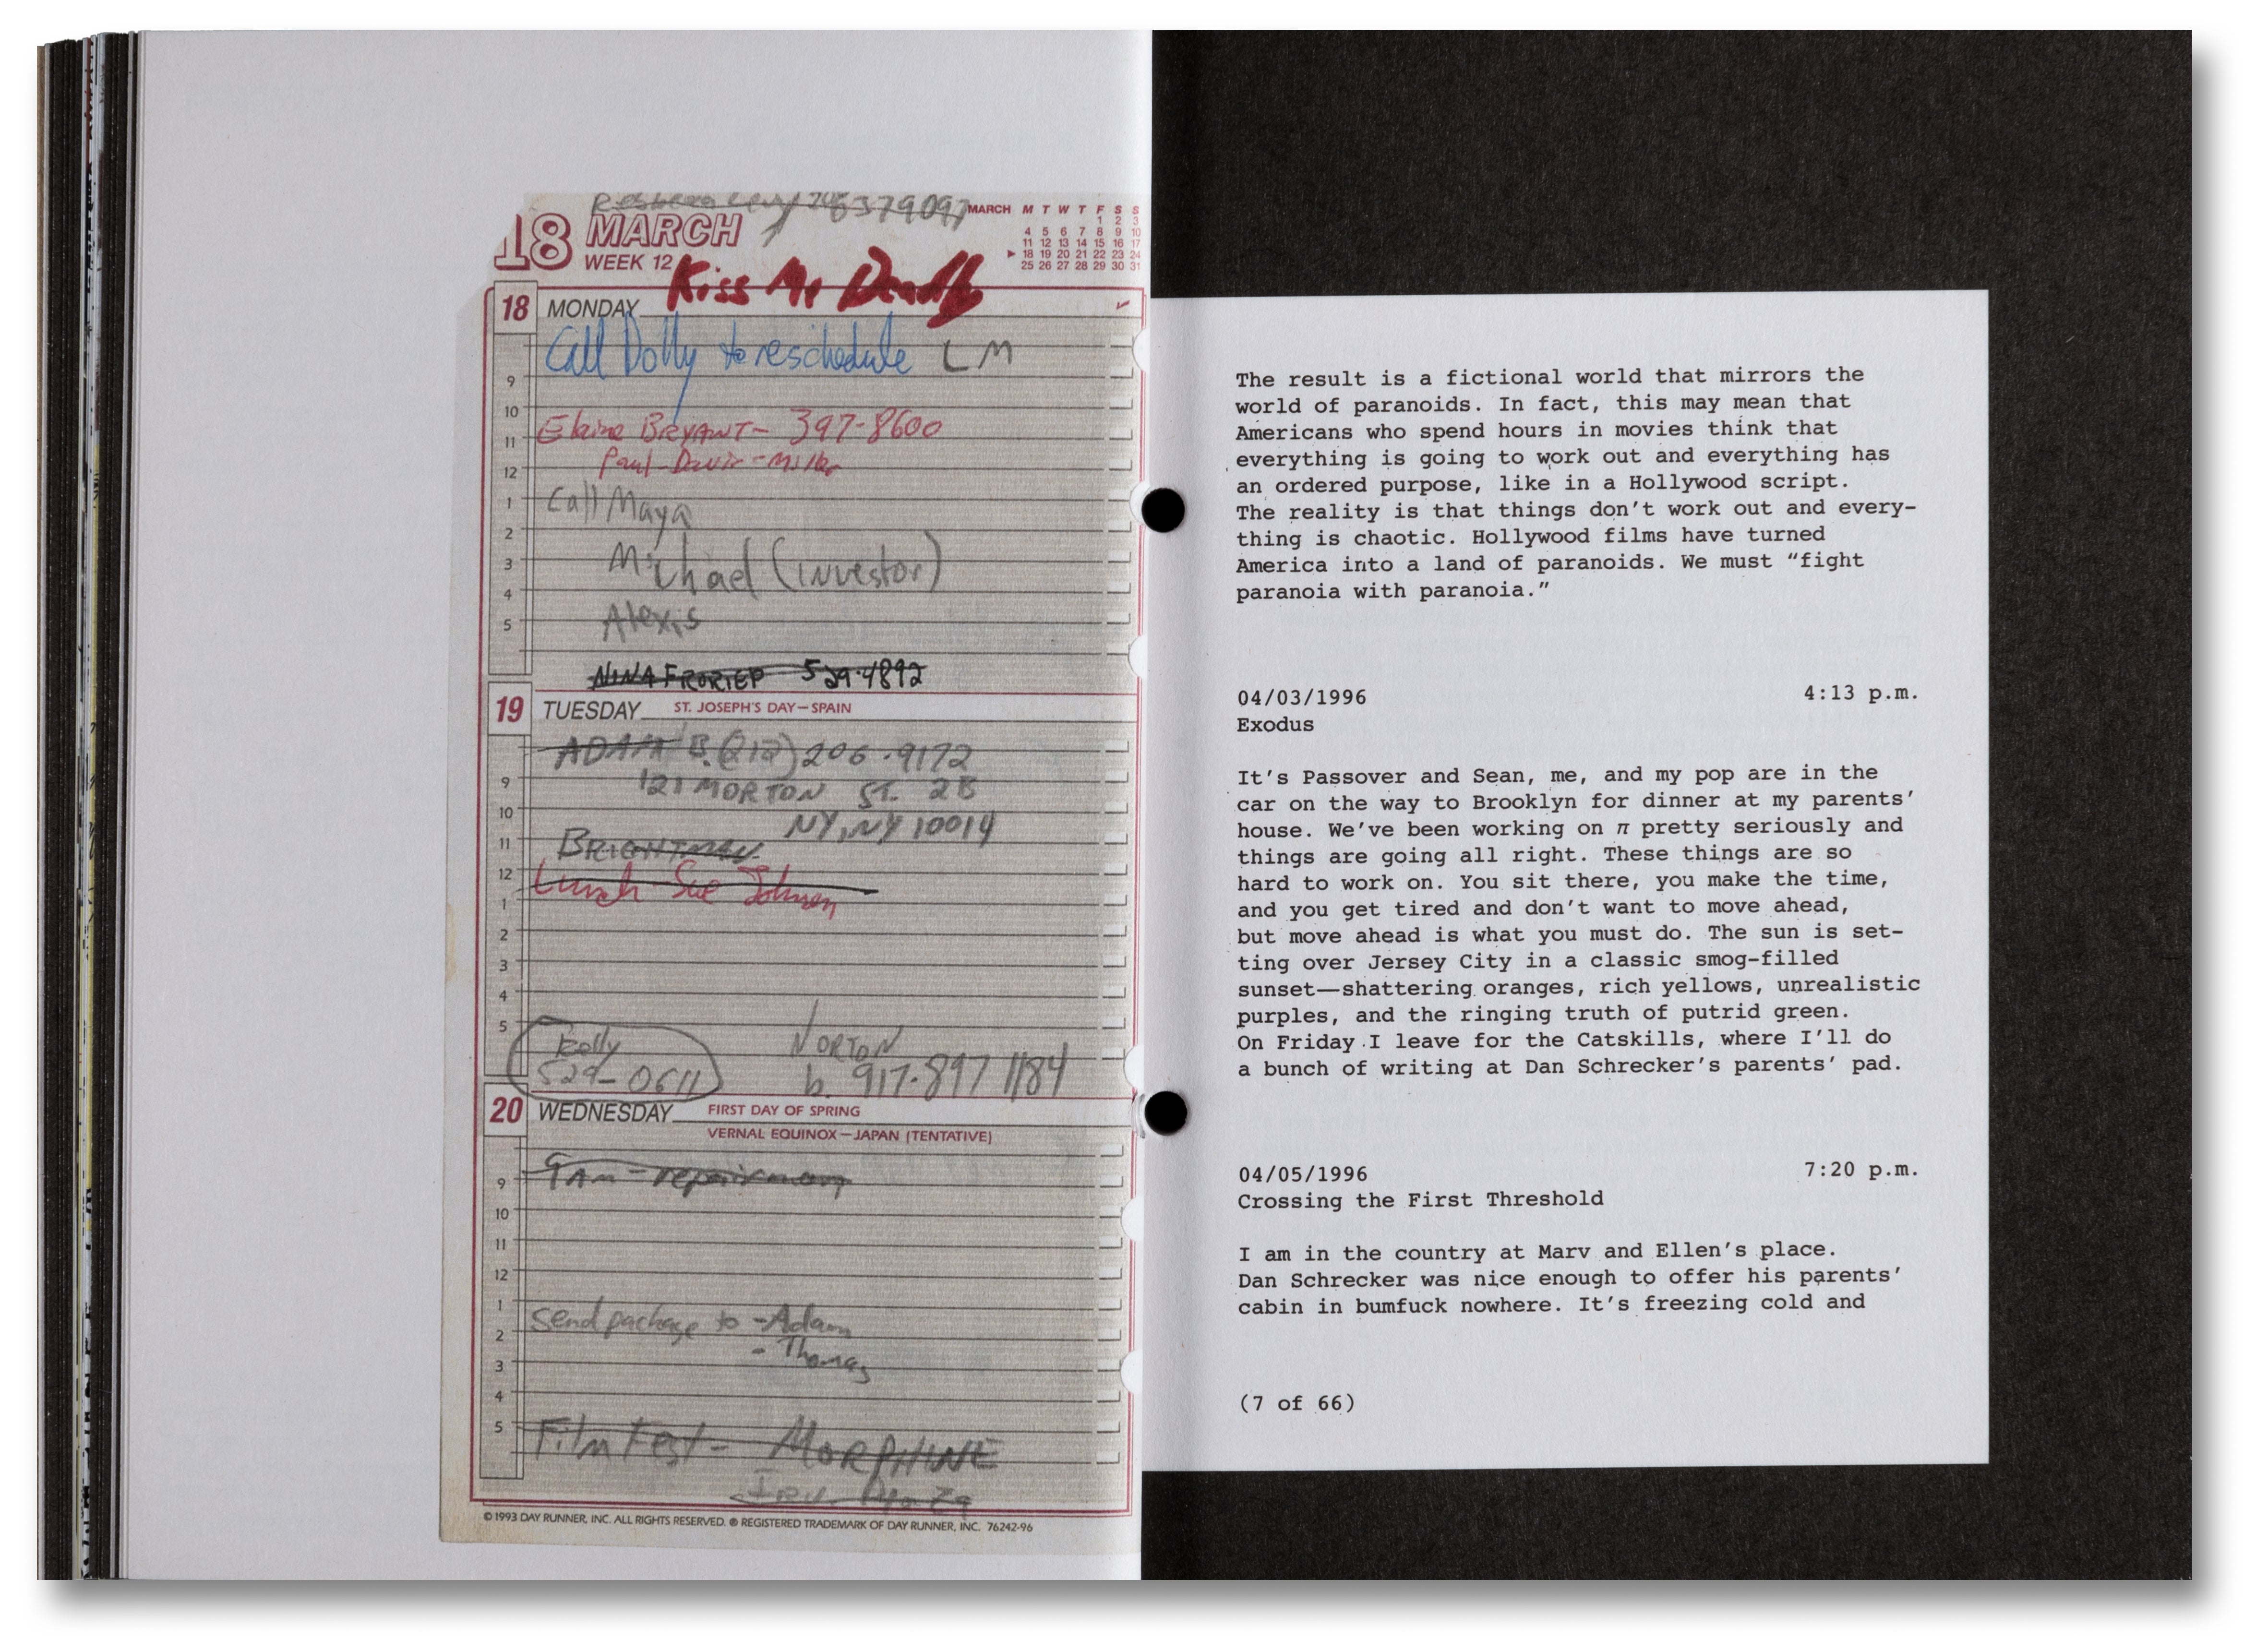 206 379097
18 MARCH
WEEK 12
MARCH M T W T F S S
1 2 3
4 5 6 7 8 9 10
11 12 13 14 15 16 17
18 19 20 21 22 23 24
25 26 27 28 29 30 31
Kiss Me Deadly
18 MONDAY
Call Dolly to reschedule LM
9
10
Elaine BRYANT- 397-8600
11
Paul-David-Miller
12
1
Call Maya
2
Michael (investor)
3
4
Alexis
5
NINA FRORIEP 529-4892
19 TUESDAY ST. JOSEPH'S DAY—SPAIN
ADAM B. (212) 206-9172
9
121 MORTON ST. 2B
10
NY, NY 10014
11
BRIGHTMAN
12
Lunch Sue Johnsen
1
2
3
4
5
Kelly
529-0611
NORTON
b. 917-897 1184
20 WEDNESDAY FIRST DAY OF SPRING
VERNAL EQUINOX—JAPAN (TENTATIVE)
9AM - repairman
9
10
11
12
1
Send package to -Adam
2
- Thomas
3
4
5
Film Fest - MORPHINE
© 1993 DAY RUNNER, INC. ALL RIGHTS RESERVED. ® REGISTERED TRADEMARK OF DAY RUNNER, INC. 76242-96
The result is a fictional world that mirrors the
world of paranoids. In fact, this may mean that
Americans who spend hours in movies think that
everything is going to work out and everything has
an ordered purpose, like in a Hollywood script.
The reality is that things don't work out and every-
thing is chaotic. Hollywood films have turned
America into a land of paranoids. We must “fight
paranoia with paranoia.”
04/03/1996 4:13 p.m.
Exodus
It's Passover and Sean, me, and my pop are in the
car on the way to Brooklyn for dinner at my parents'
house. We've been working on π pretty seriously and
things are going all right. These things are so
hard to work on. You sit there, you make the time,
and you get tired and don't want to move ahead,
but move ahead is what you must do. The sun is set-
ting over Jersey City in a classic smog-filled
sunset—shattering oranges, rich yellows, unrealistic
purples, and the ringing truth of putrid green.
On Friday I leave for the Catskills, where I'll do
a bunch of writing at Dan Schrecker's parents' pad.
04/05/1996 7:20 p.m.
Crossing the First Threshold
I am in the country at Marv and Ellen's place.
Dan Schrecker was nice enough to offer his parents'
cabin in bumfuck nowhere. It's freezing cold and
(7 of 66)